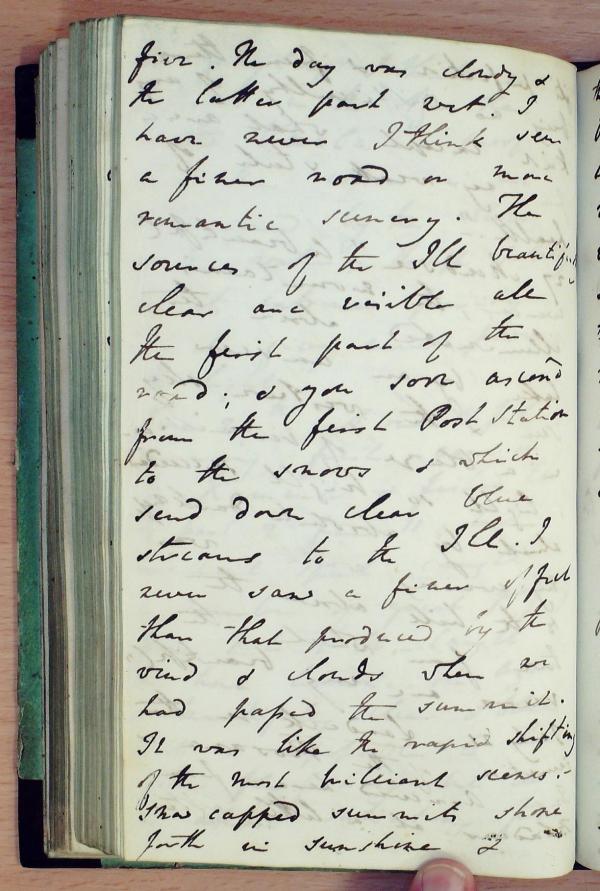 five. The day was cloudy &
the latter part wet. I
have never I think seen
a finer road or more
romantic scenery. The
sources of the Ill beautifully
clear and visible all
the first part of the
road; & you soon ascend
from the first Post Station
to the snows & which
send down clear blue
streams to the Ill. I
never saw a finer effect
than that produced by the
wind & clouds when we
had passed the summit.
It was like the rapid shifting
of the most brilliant scenes:-
snow capped summits shone
forth in sunshine &